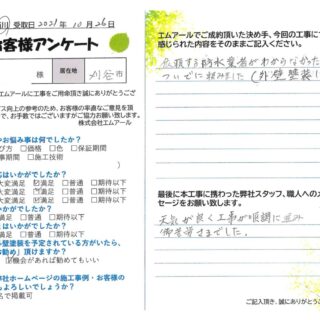 川 受取日 2021年 10月 26日
お客様アンケート
様 居住地 刈谷市
エムアールに工事をご用命頂き誠にありがとうござ
ス向上の参考のため、お客様の率直なご意見を頂
で、お手数ではございますがご協力お願い致します。
株式会社エムアール
やお悩み事は何でしたか?
び方 □価格 □色 □保証期間
事期間 □施工技術
はいかがでしたか?
大変満足 ☑満足 □普通 □期待以下
大変満足 ☑満足 □普通 □期待以下
かがでしたか?
満足 □普通 □期待以下
かがでしたか?
満足 □普通 □期待以下
壁塗装を予定されている方がいたら、
お勧め」頂けますか?
☑機会があれば勧めてもいい
弊社ホームページの施工事例・お客様の
もよろしいでしょうか?
名で掲載可
エムアールでご成約頂いた決め手、今回の工事に
感じられた内容をそのままご記入ください。
依頼する防水業者がわからなかった
ついでに頼みました (外壁塗装
最後に本工事に携わった弊社スタッフ、職人への
セージをお願い致します。
天気が良く工事が順調に進み
御苦労さまでした。
ご記入頂き、誠にありがとうご